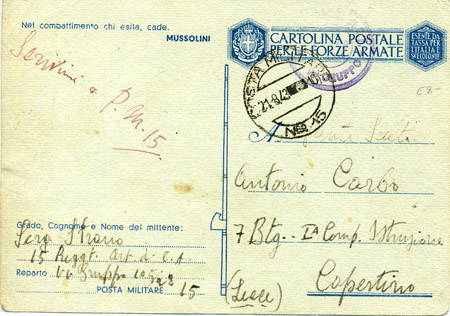 Nel combattimento chi esita, cade.
MUSSOLINI
CARTOLINA POSTALE
PER LE FORZE ARMATE
ESENTE DA
TASSA PER
L'ITALIA
E LE COLONIE
POSTA MILITARE
N° 15
GRUPPO
Scrivimi a
P.M. 15
A
Antonio Carbo
7 Btg. - Iª Comp. Istruzione
Copertino
(Lecce)
Grado, Cognome e Nome del mittente:
Serg Strano
15 Reggt. Art. d. C.A.
Reparto VI Gruppo
POSTA MILITARE 15